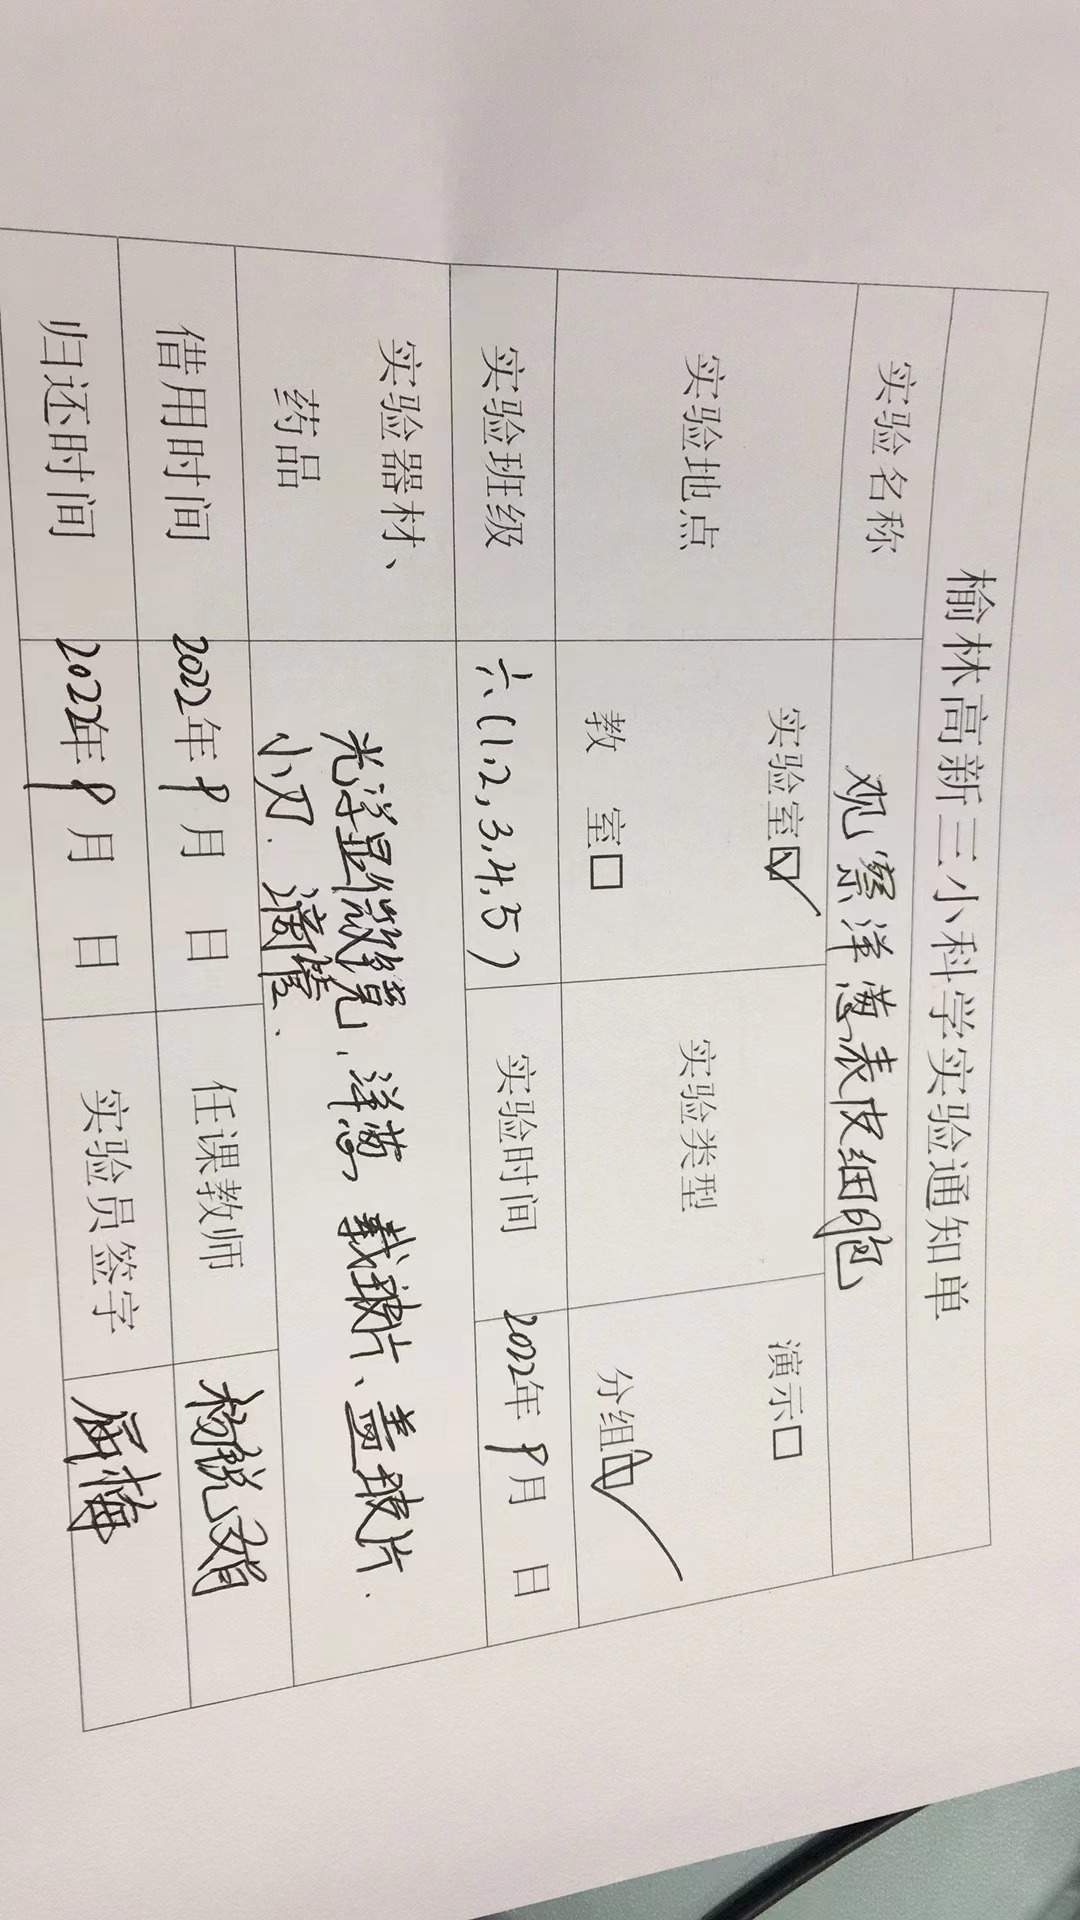 榆林高新三小科学实验通知单
实验名称 观察洋葱表皮细胞
实验地点 实验室☑ 实验类型 演示□
教 室□ 分组☑
实验班级 六(1,2,3,4,5) 实验时间 2022年9月 日
实验器材、 光学显微镜、洋葱、载玻片、盖玻片.
药品 小刀.滴管、
借用时间 2022年9月 日 任课教师 杨悦娟
归还时间 2022年9月 日 实验员签字